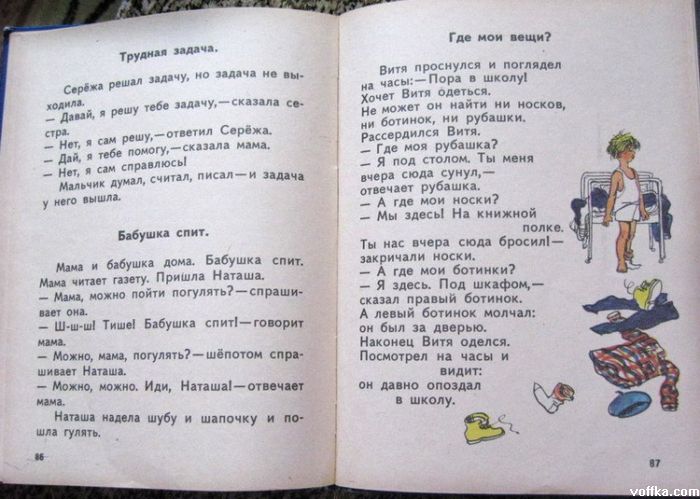 Трудная задача.
Серёжа решал задачу, но задача не вы-
ходила.
— Давай, я решу тебе задачу,—сказала се-
стра.
— Нет, я сам решу,—ответил Серёжа.
— Дай, я тебе помогу,—сказала мама.
— Нет, я сам справлюсь!
Мальчик думал, считал, писал—и задача
у него вышла.
Бабушка спит.
Мама и бабушка дома. Бабушка спит.
Мама читает газету. Пришла Наташа.
— Мама, можно пойти погулять?—спраши-
вает она.
— Ш-ш-ш! Тише! Бабушка спит!—говорит
мама.
— Можно, мама, погулять?—шёпотом спра-
шивает Наташа.
— Можно, можно. Иди, Наташа!—отвечает
мама.
Наташа надела шубу и шапочку и по-
шла гулять.
86
Где мои вещи?
Витя проснулся и поглядел
на часы:—Пора в школу!
Хочет Витя одеться.
Не может он найти ни носков,
ни ботинок, ни рубашки.
Рассердился Витя.
— Где моя рубашка?
— Я под столом. Ты меня
вчера сюда сунул,—
отвечает рубашка.
— А где мои носки?
— Мы здесь! На книжной
полке.
Ты нас вчера сюда бросил!—
закричали носки.
— А где мои ботинки?
— Я здесь. Под шкафом,—
сказал правый ботинок.
А левый ботинок молчал:
он был за дверью.
Наконец Витя оделся.
Посмотрел на часы и
видит:
он давно опоздал
в школу.
87
voffka.com